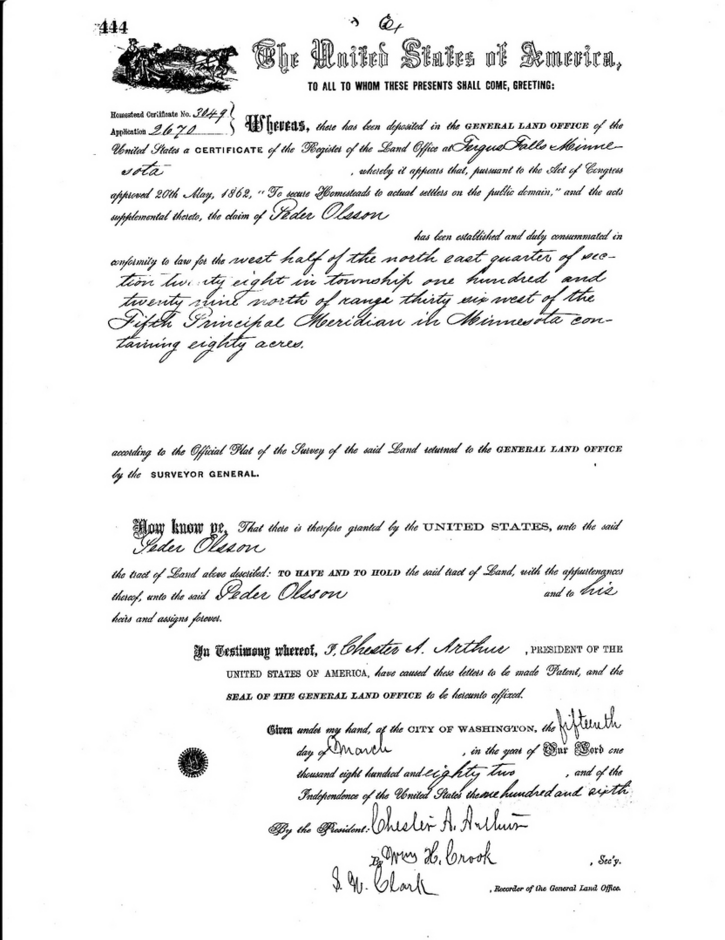 444
The United States of America,
TO ALL TO WHOM THESE PRESENTS SHALL COME, GREETING:
Homestead Certificate No. 3049
Application 2670
Whereas, there has been deposited in the GENERAL LAND OFFICE of the
United States a CERTIFICATE of the Register of the Land Office at Fergus Falls Minne
sota , whereby it appears that, pursuant to the Act of Congress
approved 20th May, 1862, "To secure Homesteads to actual settlers on the public domain," and the acts
supplemental thereto, the claim of Peder Olsson
has been established and duly consummated in
conformity to law for the west half of the north east quarter of sec-
tion twenty eight in township one hundred and
twenty nine north of range thirty six west of the
Fifth Principal Meridian in Minnesota con-
taining eighty acres.
according to the Official Plat of the Survey of the said Land returned to the GENERAL LAND OFFICE
by the SURVEYOR GENERAL.
Now know ye, That there is therefore granted by the UNITED STATES, unto the said
Peder Olsson
the tract of Land above described: TO HAVE AND TO HOLD the said tract of Land, with the appurtenances
thereof, unto the said Peder Olsson and to his
heirs and assigns forever.
In Testimony whereof, I, Chester A. Arthur , PRESIDENT OF THE
UNITED STATES OF AMERICA, have caused these letters to be made Patent, and the
SEAL OF THE GENERAL LAND OFFICE to be hereunto affixed.
Given under my hand, at the CITY OF WASHINGTON, the fifteenth
day of March , in the year of Our Lord one
thousand eight hundred and eighty two , and of the
Independence of the United States the one hundred and sixth
By the President: Chester A. Arthur
By Wm H. Crook , Sec'y.
S. W. Clark , Recorder of the General Land Office.